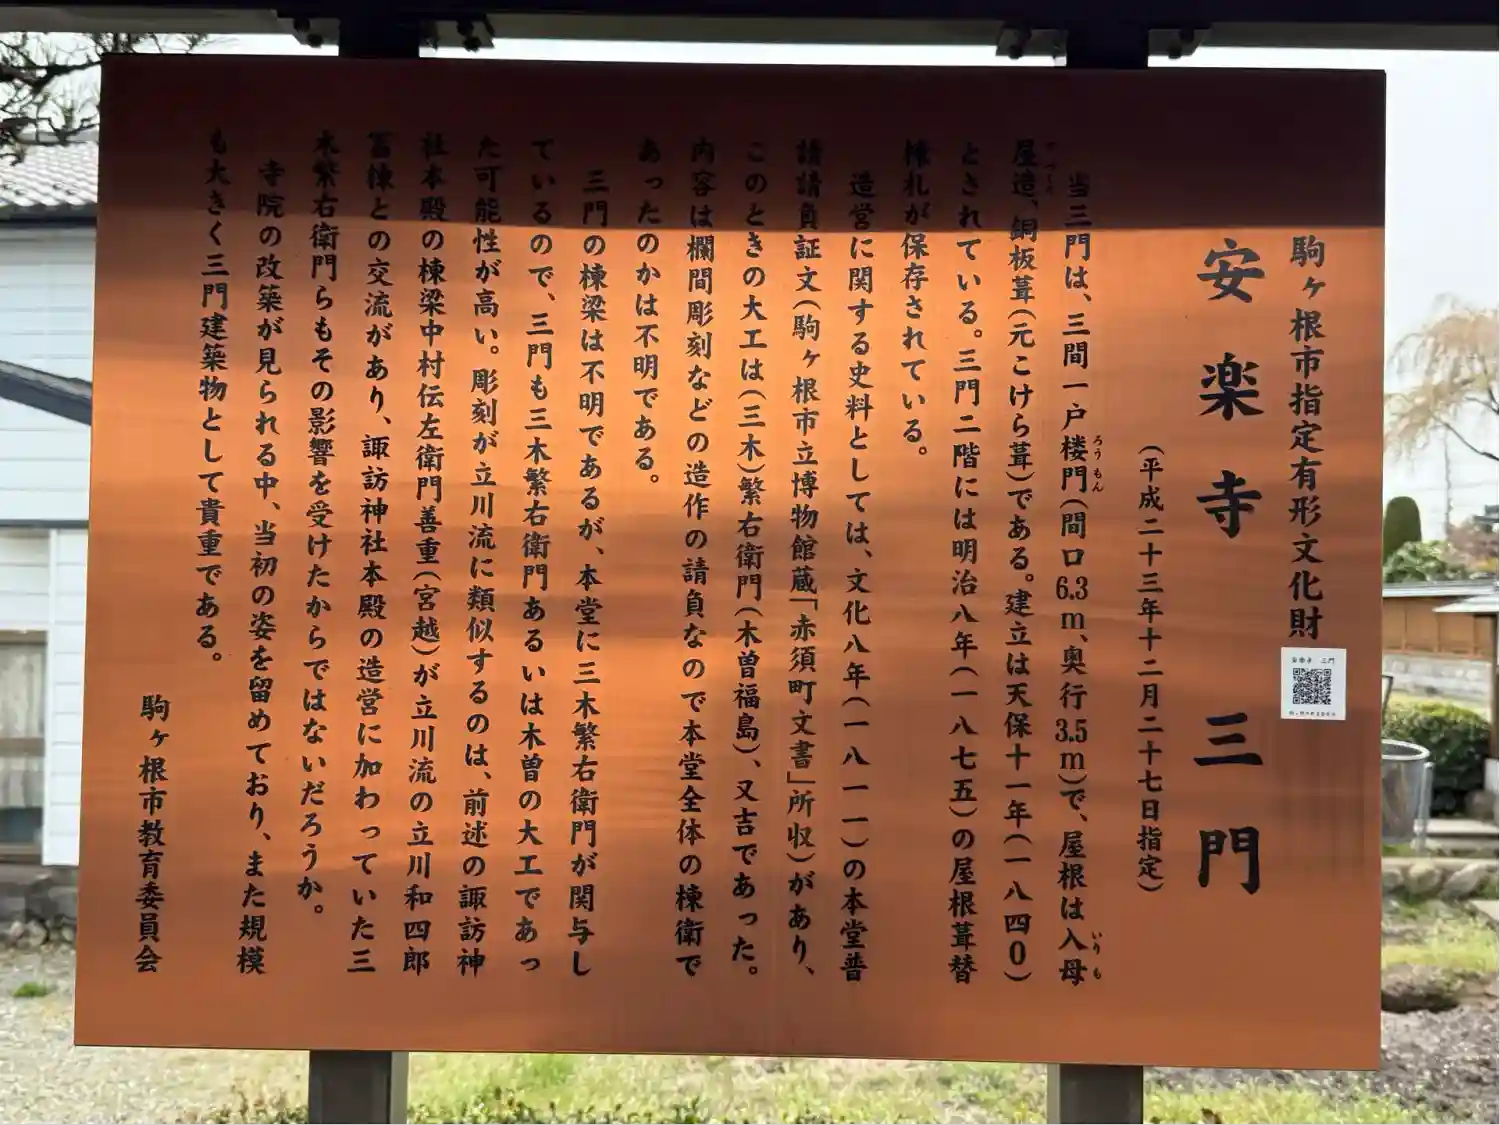 駒ヶ根市指定有形文化財
安楽寺 三門
(平成二十三年十二月二十七日指定)
当三門は、三間一戸楼門(間口6.3m、奥行3.5m)で、屋根は入母
ろうもん
いりも
屋造、銅板葺(元こけら葺)である。建立は天保十一年(一八四〇)
やづくり
とされている。三門二階には明治八年(一八七五)の屋根葺替
棟札が保存されている。
造営に関する史料としては、文化八年(一八一一)の本堂普
請請負証文(駒ヶ根市立博物館蔵「赤須町文書」所収)があり、
このときの大工は(三木)繁右衛門(木曽福島)、又吉であった。
内容は欄間彫刻などの造作の請負なので本堂全体の棟衛で
あったのかは不明である。
三門の棟梁は不明であるが、本堂に三木繁右衛門が関与し
ているので、三門も三木繁右衛門あるいは木曽の大工であっ
た可能性が高い。彫刻が立川流に類似するのは、前述の諏訪神
社本殿の棟梁中村伝左衛門善重(宮越)が立川流の立川和四郎
冨棟との交流があり、諏訪神社本殿の造営に加わっていた三
木繁右衛門らもその影響を受けたからではないだろうか。
寺院の改築が見られる中、当初の姿を留めており、また規模
も大きく三門建築物として貴重である。
駒ヶ根市教育委員会
安楽寺 三門